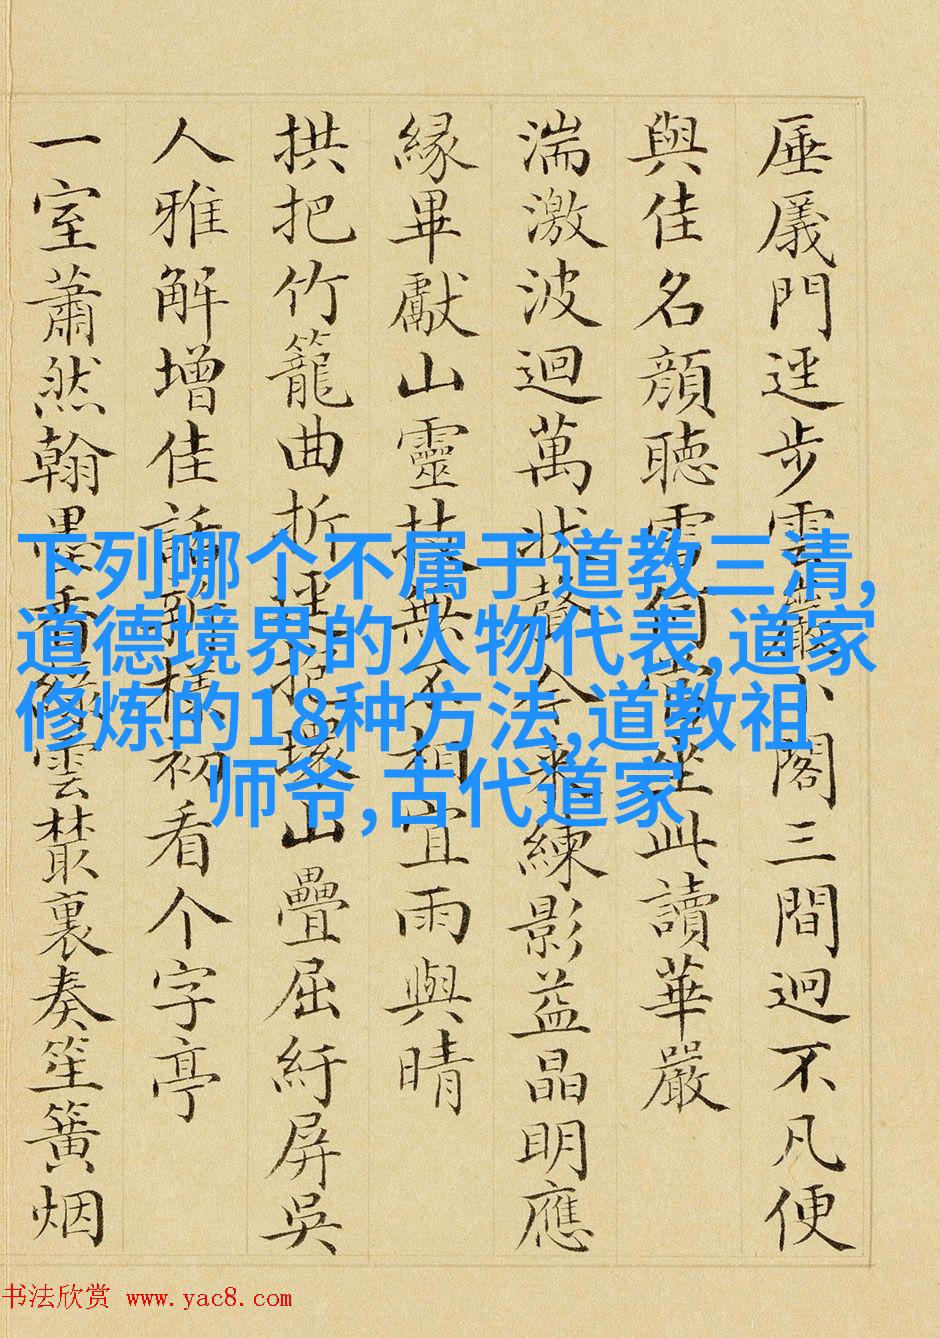 厜㕒門逕步雲巖小閣三間迥不凡便
與佳名顏聽雪何當坐此讀華嚴
湍激波迴萬狀聲今來練影益晶明應
緣畢獻山靈技無不相宜雨與晴
拱把竹籠曲折山疊屈紆屏吳
人雅解增佳話樣初看个字亭
一室蕭然翰墨香雲叢裏奏笙簧烟
下列哪个不属于道教三清,
道德境界的人物代表,道家
修炼的18种方法,道教祖
师爷,古代道家
书法欣赏 www.yac8.com